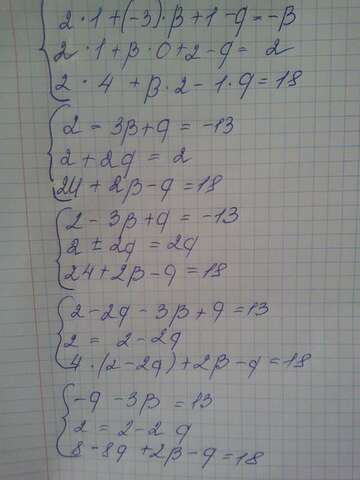 2 · 1 + (-3) · β + 1 · q = -β
2 · 1 + β · 0 + 2 · q = 2
2 · 4 + β · 2 - 1 · q = 18
2 - 3β + q = -13
2 + 2q = 2
24 + 2β - q = 18
2 - 3β + q = -13
2 ± 2q = 2q
24 + 2β - q = 18
2 - 2q - 3β + q = 13
2 = 2 - 2q
4 · (2 - 2q) + 2β - q = 18
-q - 3β = 13
2 = 2 - 2q
8 - 8q + 2β - q = 18